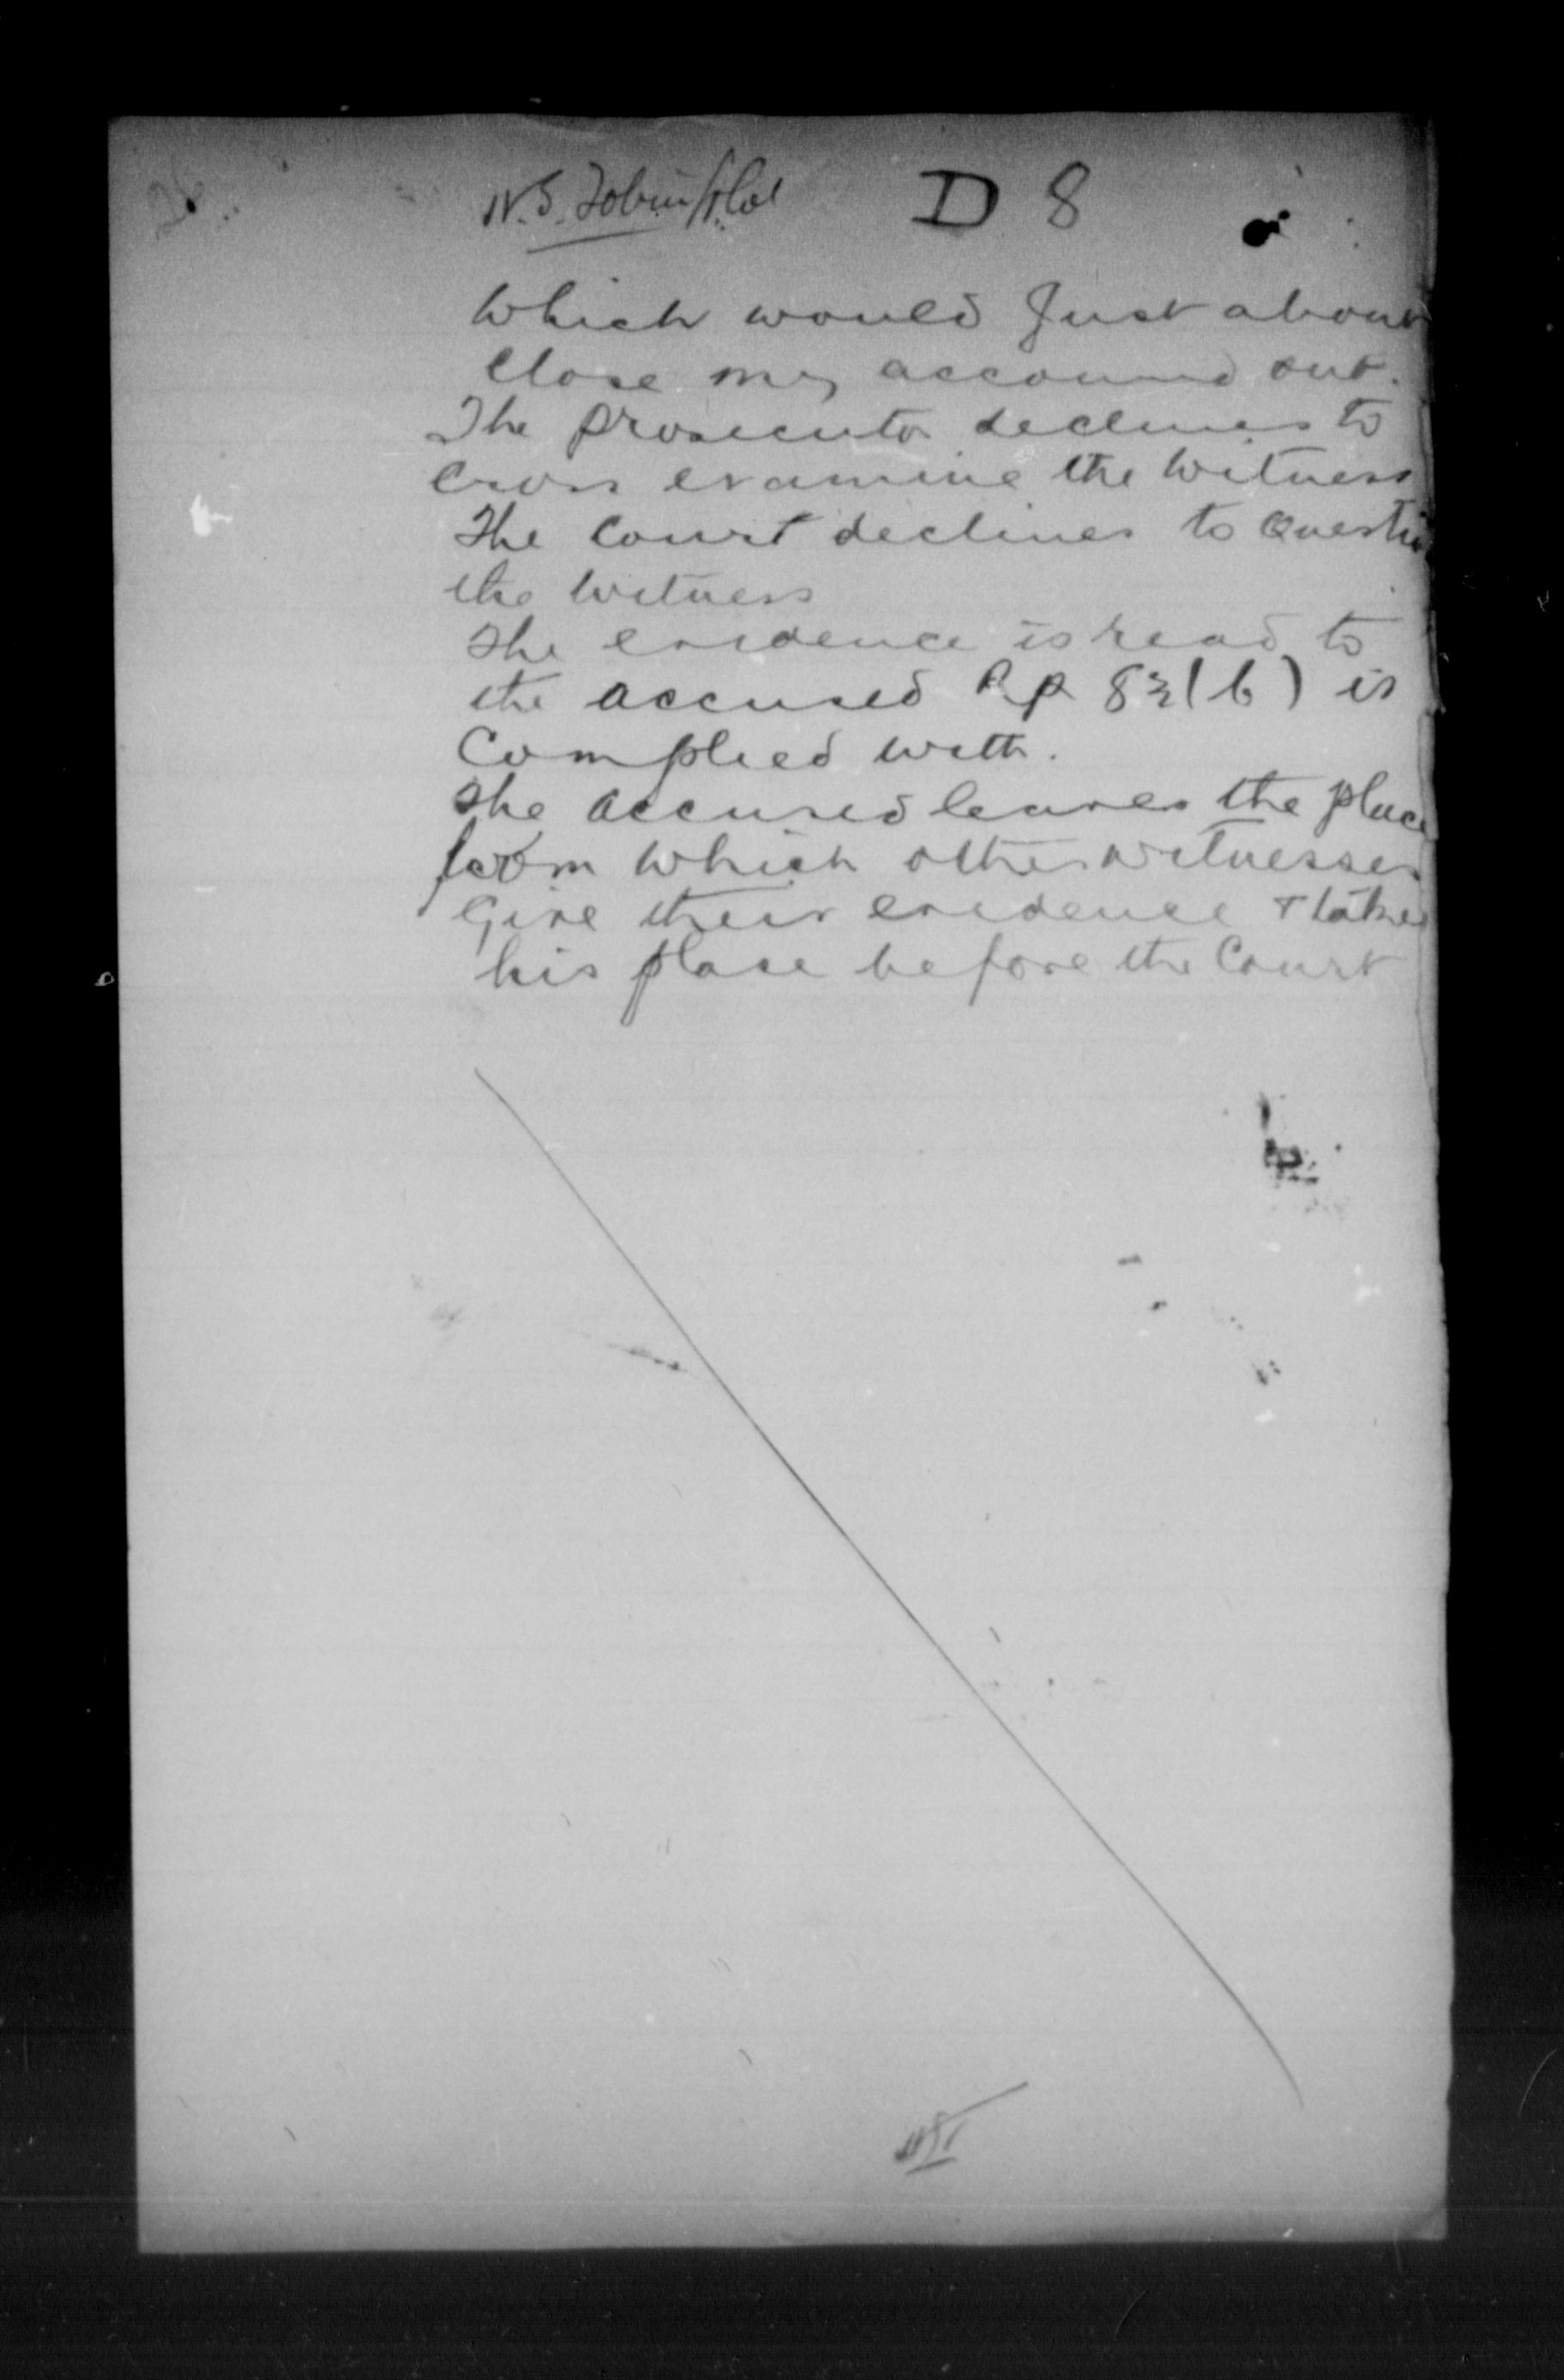 D 8
which would Just about
Close my account out.
The prosecutor declines to
Cross examine the Witness
The Court declines to Questio
the Witness
The evidence is read to
the accused RP 83(b) is
Complied with.
The accused leaves the place
from which other witnesses
Give their evidence + takes
his place before the Court